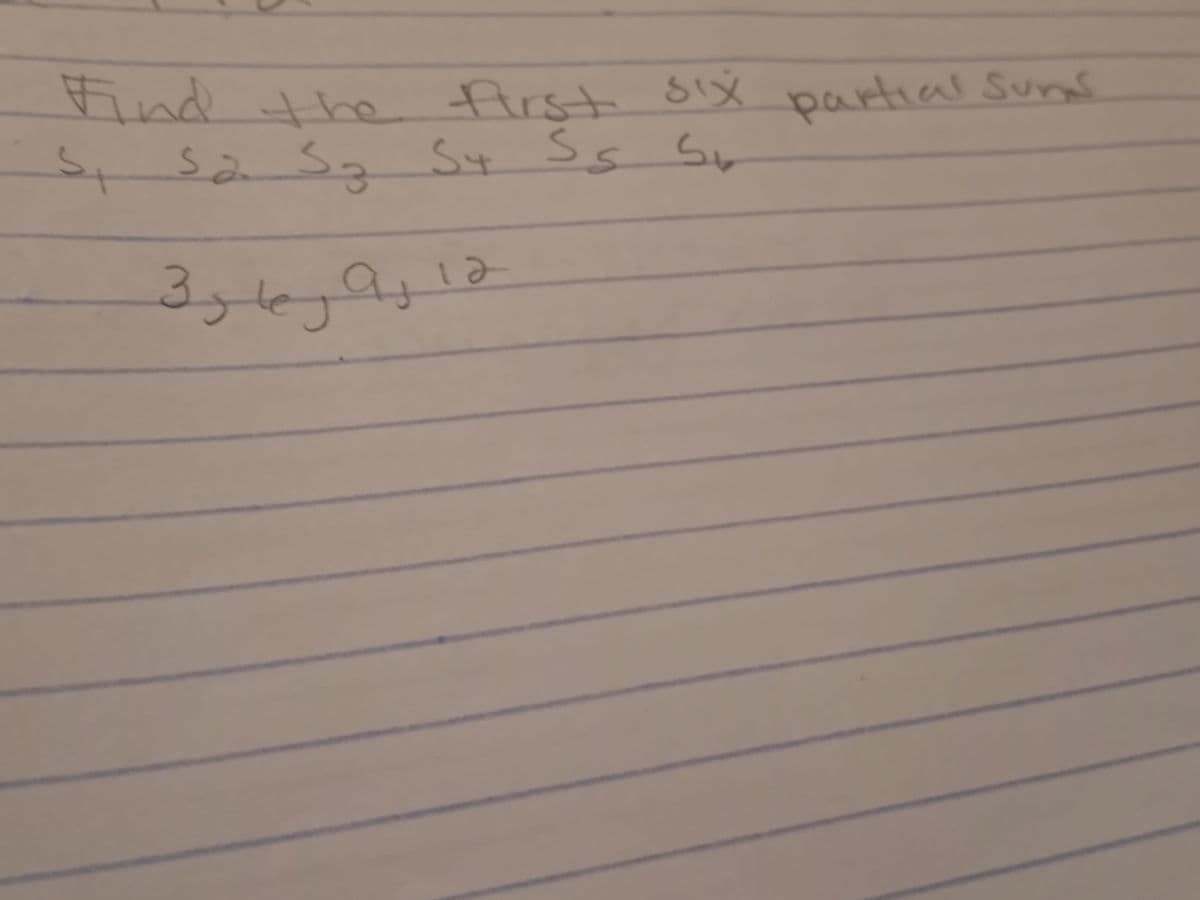 Find the first six partial sums
S1 S2 S3 S4 S5 S6
3, 6, 9, 12